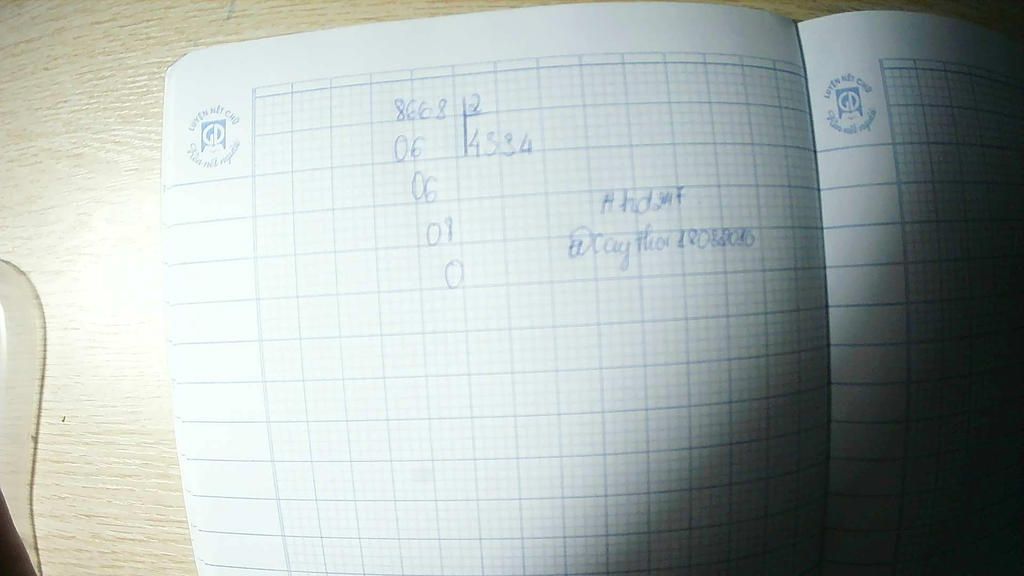 LUYỆN NÉT CHỮ
Rèn nết người
8668 2
06 4334
06
08
0
LUYỆN NÉT CHỮ
Rèn nết người